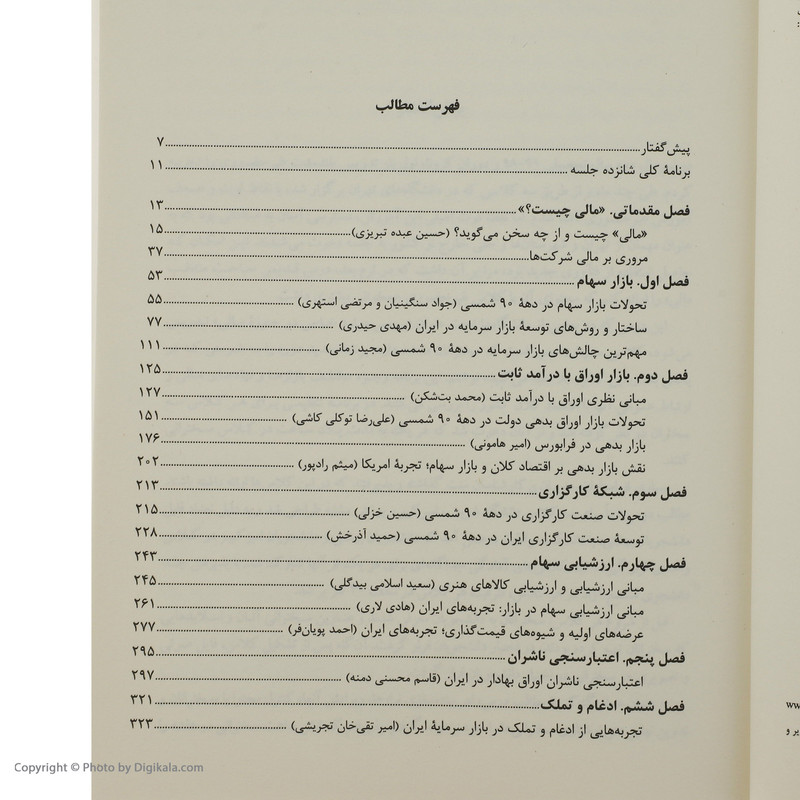 فهرست مطالب
پیش‌گفتار ........ ۷
برنامهٔ کلی شانزده جلسه ........ ۱۱
فصل مقدماتی. «مالی چیست؟» ........ ۱۳
«مالی» چیست و از چه سخن می‌گوید؟ (حسین عبده تبریزی) ........ ۱۵
مروری بر مالی شرکت‌ها ........ ۳۷
فصل اول. بازار سهام ........ ۵۳
تحولات بازار سهام در دههٔ ۹۰ شمسی (جواد سنگینیان و مرتضی استهری) ........ ۵۵
ساختار و روش‌های توسعهٔ بازار سرمایه در ایران (مهدی حیدری) ........ ۷۷
مهم‌ترین چالش‌های بازار سرمایه در دههٔ ۹۰ شمسی (مجید زمانی) ........ ۱۱۱
فصل دوم. بازار اوراق با درآمد ثابت ........ ۱۲۵
مبانی نظری اوراق با درآمد ثابت (محمد بت‌شکن) ........ ۱۲۷
تحولات بازار اوراق بدهی دولت در دههٔ ۹۰ شمسی (علی‌رضا توکلی کاشی) ........ ۱۵۱
بازار بدهی در فرابورس (امیر هامونی) ........ ۱۷۶
نقش بازار بدهی بر اقتصاد کلان و بازار سهام؛ تجربهٔ امریکا (میثم رادپور) ........ ۲۰۲
فصل سوم. شبکهٔ کارگزاری ........ ۲۱۳
تحولات صنعت کارگزاری در دههٔ ۹۰ شمسی (حسین خزلی) ........ ۲۱۵
توسعهٔ صنعت کارگزاری ایران در دههٔ ۹۰ شمسی (حمید آذرخش) ........ ۲۲۸
فصل چهارم. ارزشیابی سهام ........ ۲۴۳
مبانی ارزشیابی و ارزشیابی کالاهای هنری (سعید اسلامی بیدگلی) ........ ۲۴۵
مبانی ارزشیابی سهام در بازار: تجربه‌های ایران (هادی لاری) ........ ۲۶۱
عرضه‌های اولیه و شیوه‌های قیمت‌گذاری؛ تجربه‌های ایران (احمد پویان‌فر) ........ ۲۷۷
فصل پنجم. اعتبارسنجی ناشران ........ ۲۹۵
اعتبارسنجی ناشران اوراق بهادار در ایران (قاسم محسنی دمنه) ........ ۲۹۷
فصل ششم. ادغام و تملک ........ ۳۲۱
تجربه‌هایی از ادغام و تملک در بازار سرمایهٔ ایران (امیر تقی‌خان تجریشی) ........ ۳۲۳
Copyright © Photo by Digikala.com